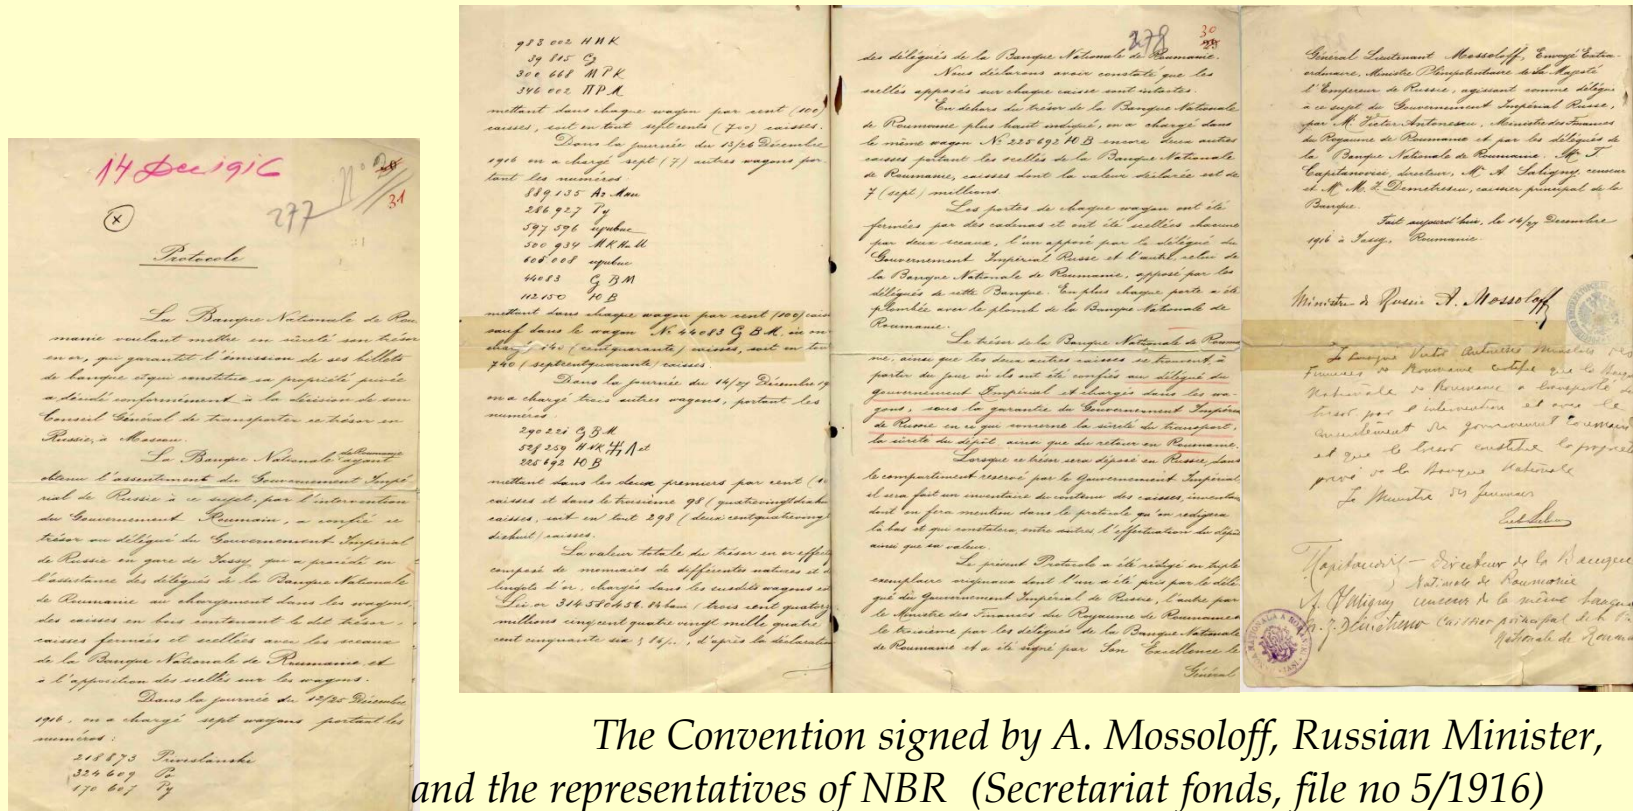 14 Dec 1916
277
31
Protocole
La Banque Nationale de Rou-
manie voulant mettre en sûreté son trésor
en or, qui garantit l'émission de ses billets
de banque et qui constitue sa propriété privée
a décidé conformément à la décision de son
Conseil Général de transporter ce trésor en
Russie, à Moscou.
La Banque Nationale de Roumanie ayant
obtenu l'assentiment du Gouvernement Impé-
rial de Russie à ce sujet, par l'intervention
du Gouvernement Roumain, a confié ce
trésor au délégué du Gouvernement Impérial
de Russie en gare de Jassy, qui a procédé en
l'assistance des délégués de la Banque Nationale
de Roumanie au chargement dans les wagons,
des caisses en bois contenant le dit trésor,
caisses fermées et scellées avec les sceaux
de la Banque Nationale de Roumanie et
à l'apposition des scellés sur les wagons.
Dans la journée du 12/25 Décembre
1916, on a chargé sept wagons portant les
numéros:
218873 Priwislanski
324609
170607
983002 НПК
39815
300668 МРК
346002 ПРМ
mettant dans chaque wagon par cent (100)
caisses, soit en tout sept cents (700) caisses.
Dans la journée du 13/26 Décembre
1916 on a chargé sept (7) autres wagons por-
tant les numéros:
889135
286927
597596
500934
605008
44083
112150 Ю В
mettant dans chaque wagon par cent (100) caisses
sauf dans le wagon No 44083 où on
chargé 140 (cent quarante) caisses, soit en tout
740 (sept cent quarante) caisses.
Dans la journée du 14/27 Décembre 19
on a chargé trois autres wagons, portant les
numéros:
290221
528259 et
225692 Ю В
mettant dans les deux premiers par cent
caisses et dans le troisième 98 (quatre vingt dix huit
caisses, soit en tout 298 (deux cent quatre vingt
dix huit) caisses.
La valeur totale du trésor en or effectif
composé de monnaies de différentes natures et de
lingots d'or, chargés dans les susdits wagons est
Lei or 314580456.84 bani (trois cent quatorze
millions cinq cent quatre vingt mille quatre
cent cinquante six d'après la déclaration
278
30
des délégués de la Banque Nationale de Roumanie.
Nous déclarons avoir constaté que les
scellés apposés sur chaque caisse sont intactes.
En dehors du trésor de la Banque Nationale
de Roumanie plus haut indiqué, on a chargé dans
le même wagon No 225692 Ю В encore deux autres
caisses portant les scellés de la Banque Nationale
de Roumanie, caisses dont la valeur déclarée est de
7 (sept) millions.
Les portes de chaque wagon ont été
fermées par des cadenas et ont été scellées chacune
par deux sceaux, l'un apposé par le délégué du
Gouvernement Impérial Russe et l'autre, celui de
la Banque Nationale de Roumanie, apposé par les
délégués de cette Banque. En plus chaque porte a été
plombée avec le plomb de la Banque Nationale de
Roumanie.
Le trésor de la Banque Nationale de Rouma
nie, ainsi que les deux autres caisses se trouvent, à
partir du jour où ils ont été confiés au délégué du
gouvernement Impérial et chargés dans les wa-
gons, sous la garantie du Gouvernement Impérial
de Russie en ce qui concerne la sûreté du transport,
la sûreté du dépôt, ainsi que du retour en Roumanie.
Lorsque ce trésor sera déposé en Russie, dans
le compartiment reservé par le Gouvernement Impérial,
il sera fait un inventaire du contenu des caisses, inventaire
dont on fera mention dans le protocole qu'on redigera
là bas et qui constatera, entre autres l'effectuation du dépôt
ainsi que sa valeur.
Le présent Protocole a été rédigé en triple
exemplaire originaux dont l'un a été pris par le délé-
gué du Gouvernement Impérial de Russie, l'autre par
le Ministre des Finances du Royaume de Roumanie
le troisième par les délégués de la Banque Nationale
de Roumanie et a été signé par Son Excellence le
Général
Général Lieutenant Mossoloff, Envoyé Extra-
ordinaire, Ministre Plénipotentiaire de Sa Majesté
l'Empereur de Russie, agissant comme délégué
à ce sujet du Gouvernement Impérial Russe,
par M. Victor Antonescu, Ministre des Finances
du Royaume de Roumanie et par les délégués de
la Banque Nationale de Roumanie. Mr T.
Capitanovici, directeur, Mr A. Saligny, censeur
et Mr M. Z. Demetrescu, caissier principal de la
Banque.
Fait aujourd'hui, le 14/27 Decembre
1916 à Jassy, Roumanie.
Ministre de Russie A. Mossoloff
Je soussigné Victor Antonescu Ministre des
Finances de Roumanie certifie que la Banque
Nationale de Roumanie a transporté
trésor par l'intervention et avec le
du gouvernement roumain
et que le trésor constitue la propriété
privée de la Banque Nationale
Le Ministre des Finances
Directeur de la Banque
Nationale de Roumanie
A. Saligny censeur de la même banque
caissier principal de la
Nationale de Roumanie
The Convention signed by A. Mossoloff, Russian Minister,
and the representatives of NBR (Secretariat fonds, file no 5/1916)